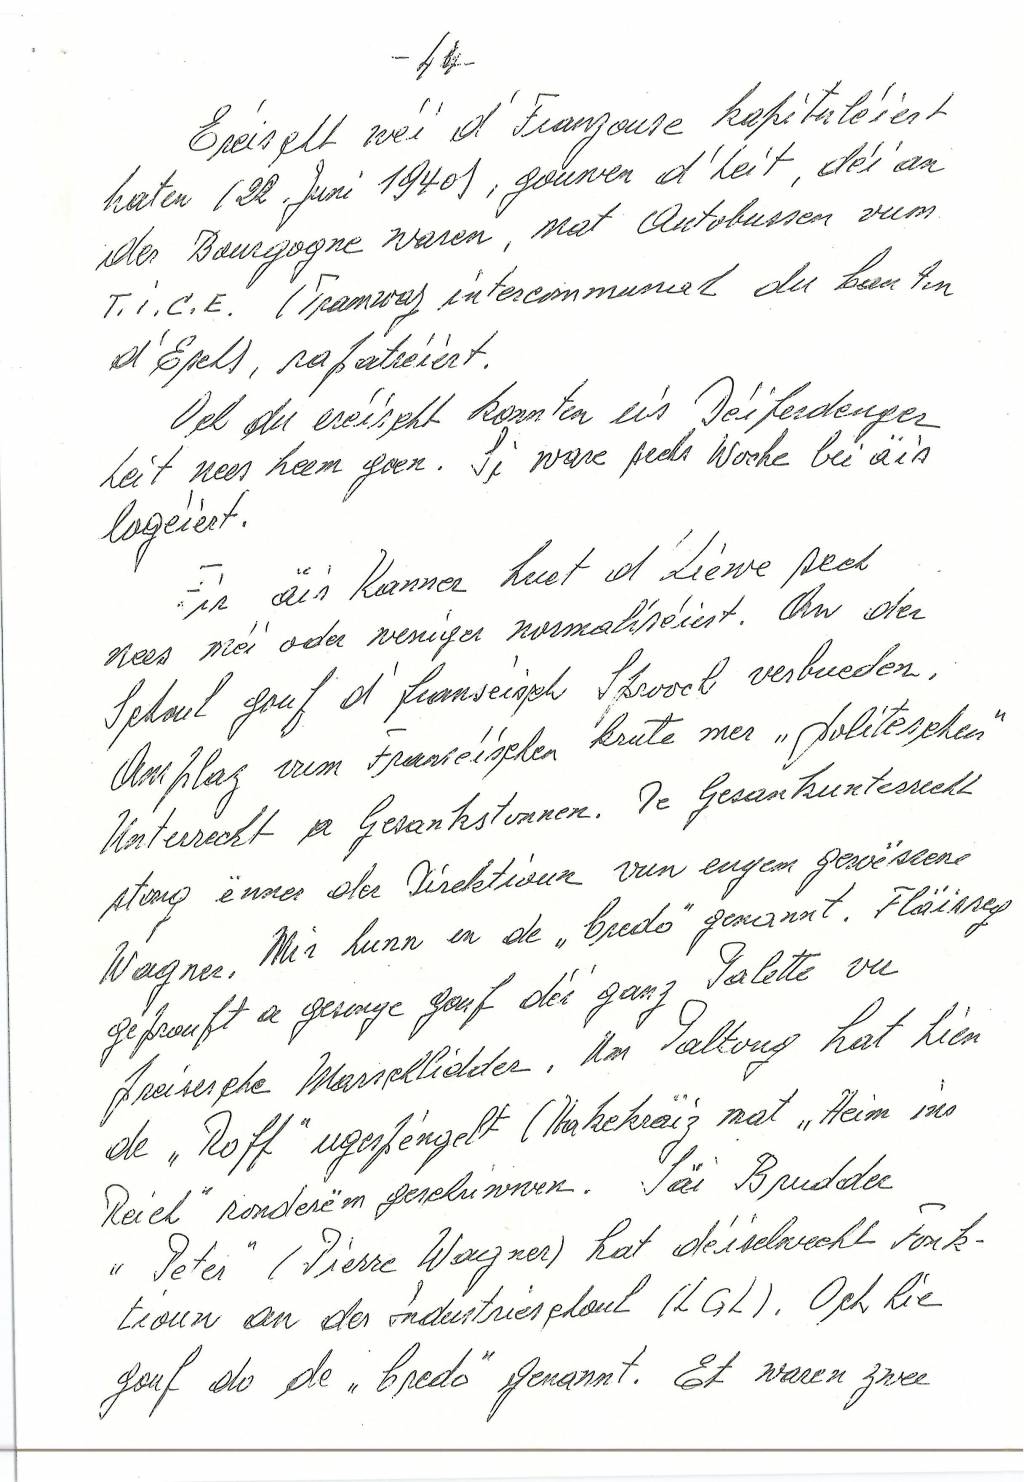 - 44 -
Eréischt wéi d'Franzouse kapituléiert
haten (22. Juni 1940), gouwen d'Leit, déi an
der Bourgogne waren, mat Autobussen vum
T.I.C.E. (Tramway intercommunal du canton
d'Esch), rapatréiert.
Och du eréischt konnten eis Déiferdenger
Leit nees heem goen. Si ware sechs Woche bei äis
logéiert.
Fir äis Kanner huet d'Liewe sech
nees méi oder weniger normaliséiert. An der
Schoul gouf d'franséisch Sprooch verbueden.
Amplaz vum Franséischen krute mer „politeschen"
Unterrecht a Gesankstonnen. De Gesankunterrecht
stong ënner der Direktioun vun engem gewëssene
Wagner. Mir hunn en de „Credo" genannt. Fläisseg
geprouft a gesonge gouf déi ganz Palette vu
preisesche Marschlidder. Um Paltong hat hien
de „Roff" ugespéngelt (Hakekräiz mat „Heim ins
Reich" ronderëm geschriwwen. Säi Brudder
„Peter" (Pierre Wagner) hat déiselwecht Fonk-
tioun an der Industrieschoul (LGL). Och hie
gouf do de „Credo" genannt. Et waren zwee